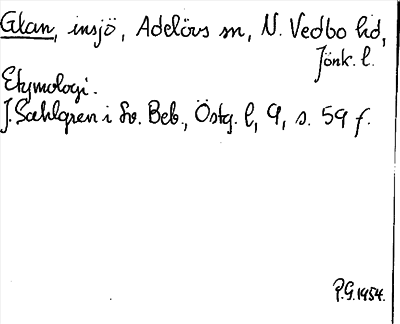 Glan, insjö, Adelövs sn, N. Vedbo hd,
Jönk. l.
Etymologi.
J. Sahlgren i Sv. Beb., Östg. l, 9, s. 59 f.
P.G. 1954.